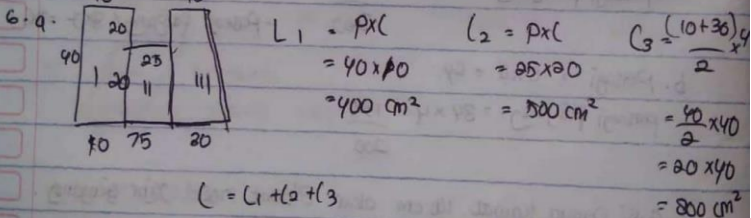 6. a.
20
40
25
1 20 11 111
10 75 20
L1 = pxl
= 40 x 10
= 400 cm²
L2 = pxl
= 25x20
= 500 cm²
L3 = (10+30) x 4
2
= 40 x40
2
= 20 x40
= 800 cm²
L = L1 + L2 + L3